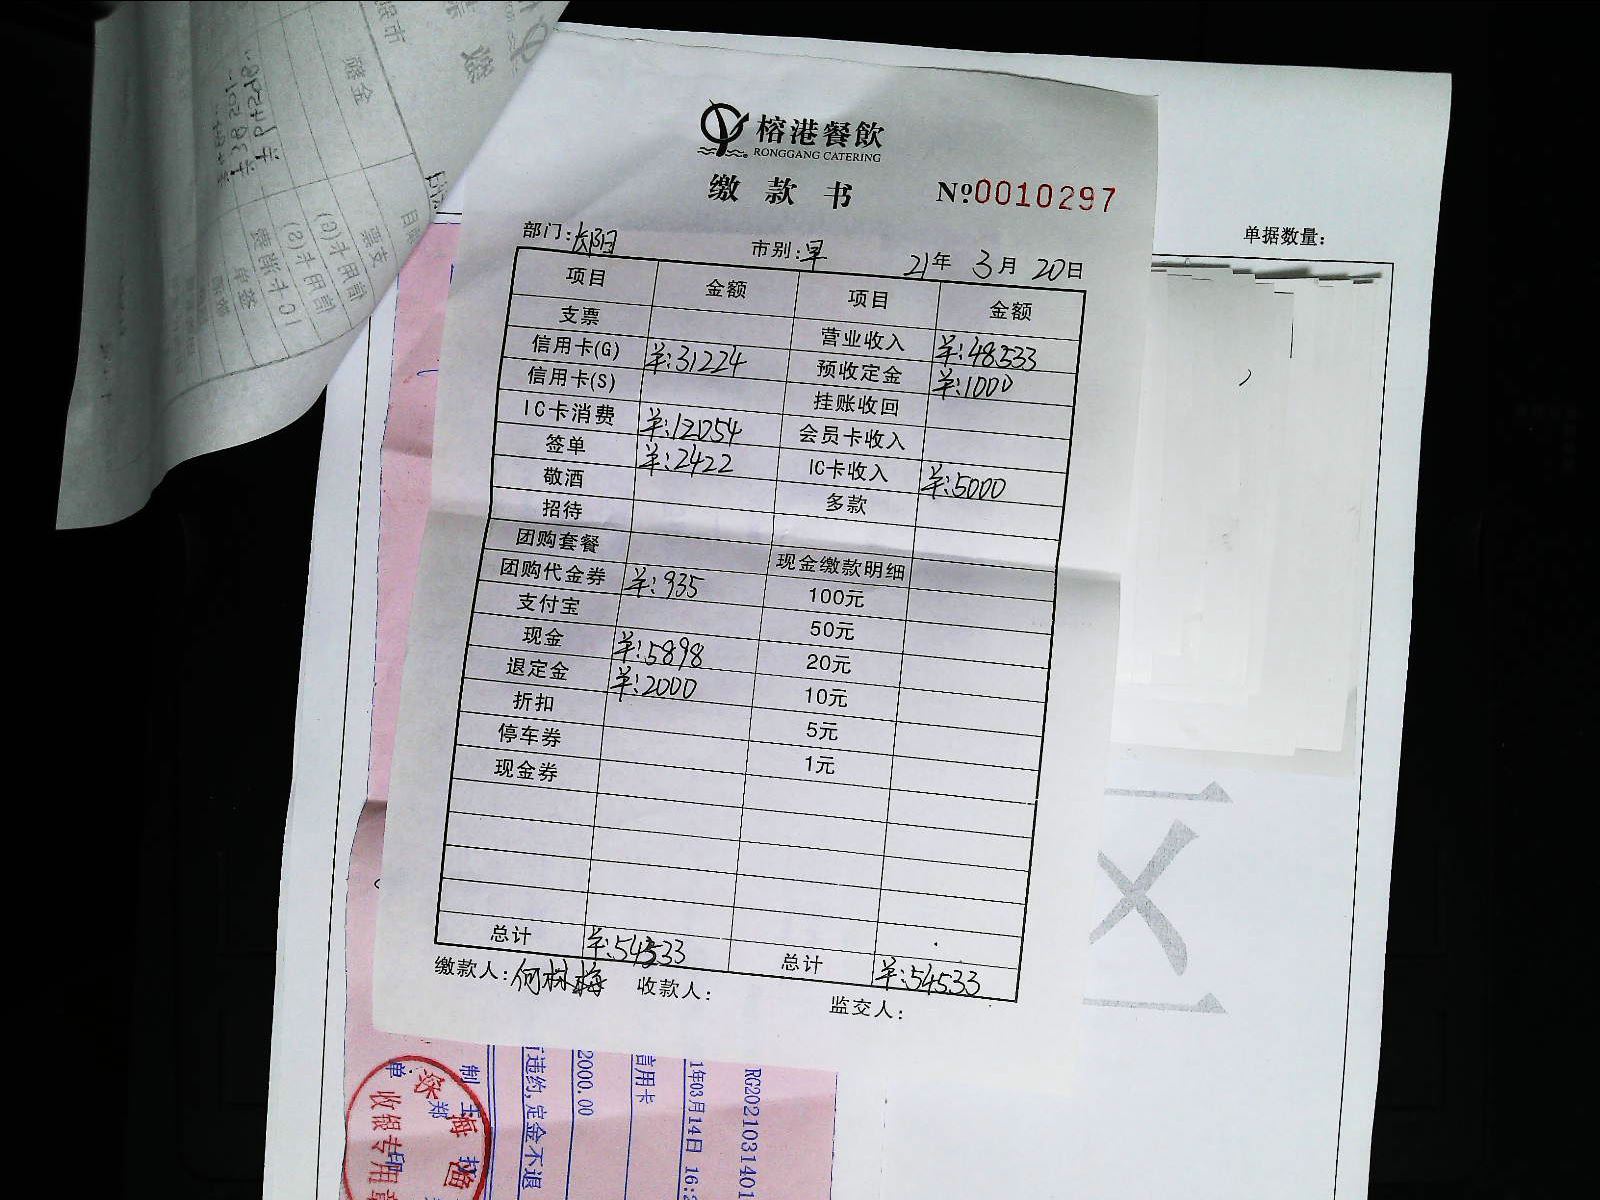 榕港餐飲
RONGGANG CATERING
缴款书 №0010297
单据数量：
部门：郑阳 市别：早 21年 3月 20日
项目 金额 项目 金额
支票 营业收入 ¥:48533
信用卡(G) ¥:31224 预收定金 ¥:1000
信用卡(S) 挂账收回
IC卡消费 ¥:12054 会员卡收入
签单 ¥:2422 IC卡收入 ¥:5000
敬酒 多款
招待
团购套餐 现金缴款明细
团购代金券 ¥:935 100元
支付宝 50元
现金 ¥:5898 20元
退定金 ¥:2000 10元
折扣 5元
停车券 1元
现金券
总计 ¥:54533 总计 ¥:54533
缴款人：何林梅 收款人： 监交人：
RG2021031401
1年03月14日 16:2
信用卡
2000.00
违约,定金不退
制
单
收银专用